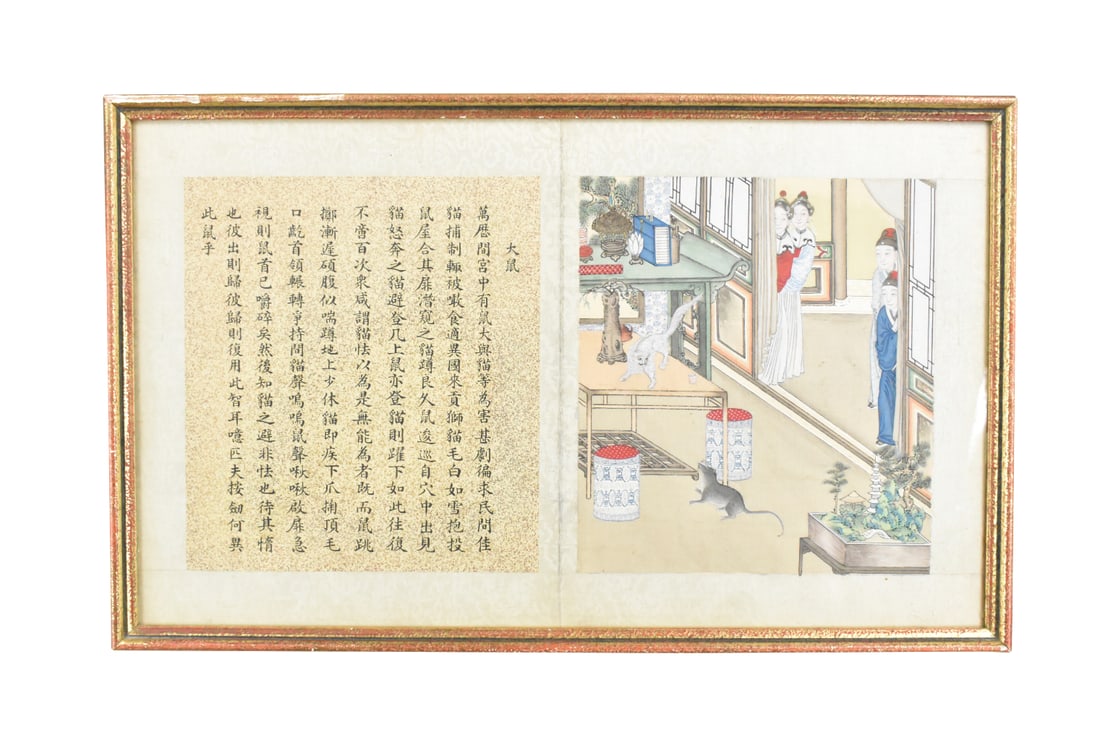 大鼠
萬歷間宮中有鼠大與貓等為害甚劇徧求民間佳
貓捕制輒被噉食適異國來貢獅貓毛白如雪抱投
鼠屋合其扉潛窺之貓蹲良久鼠逡巡自穴中出見
貓怒奔之貓避登几上鼠亦登貓則躍下如此往復
不啻百次衆咸謂貓怯以為是無能為者既而鼠跳
擲漸遲碩腹似喘蹲地上少休貓即疾下爪掬頂毛
口齕首領輾轉爭持間貓聲嗚嗚鼠聲啾啾啟扉急
視則鼠首已嚼碎矣然後知貓之避非怯也待其惰
也彼出則歸彼歸則復用此智耳噫匹夫按劍何異
此鼠乎